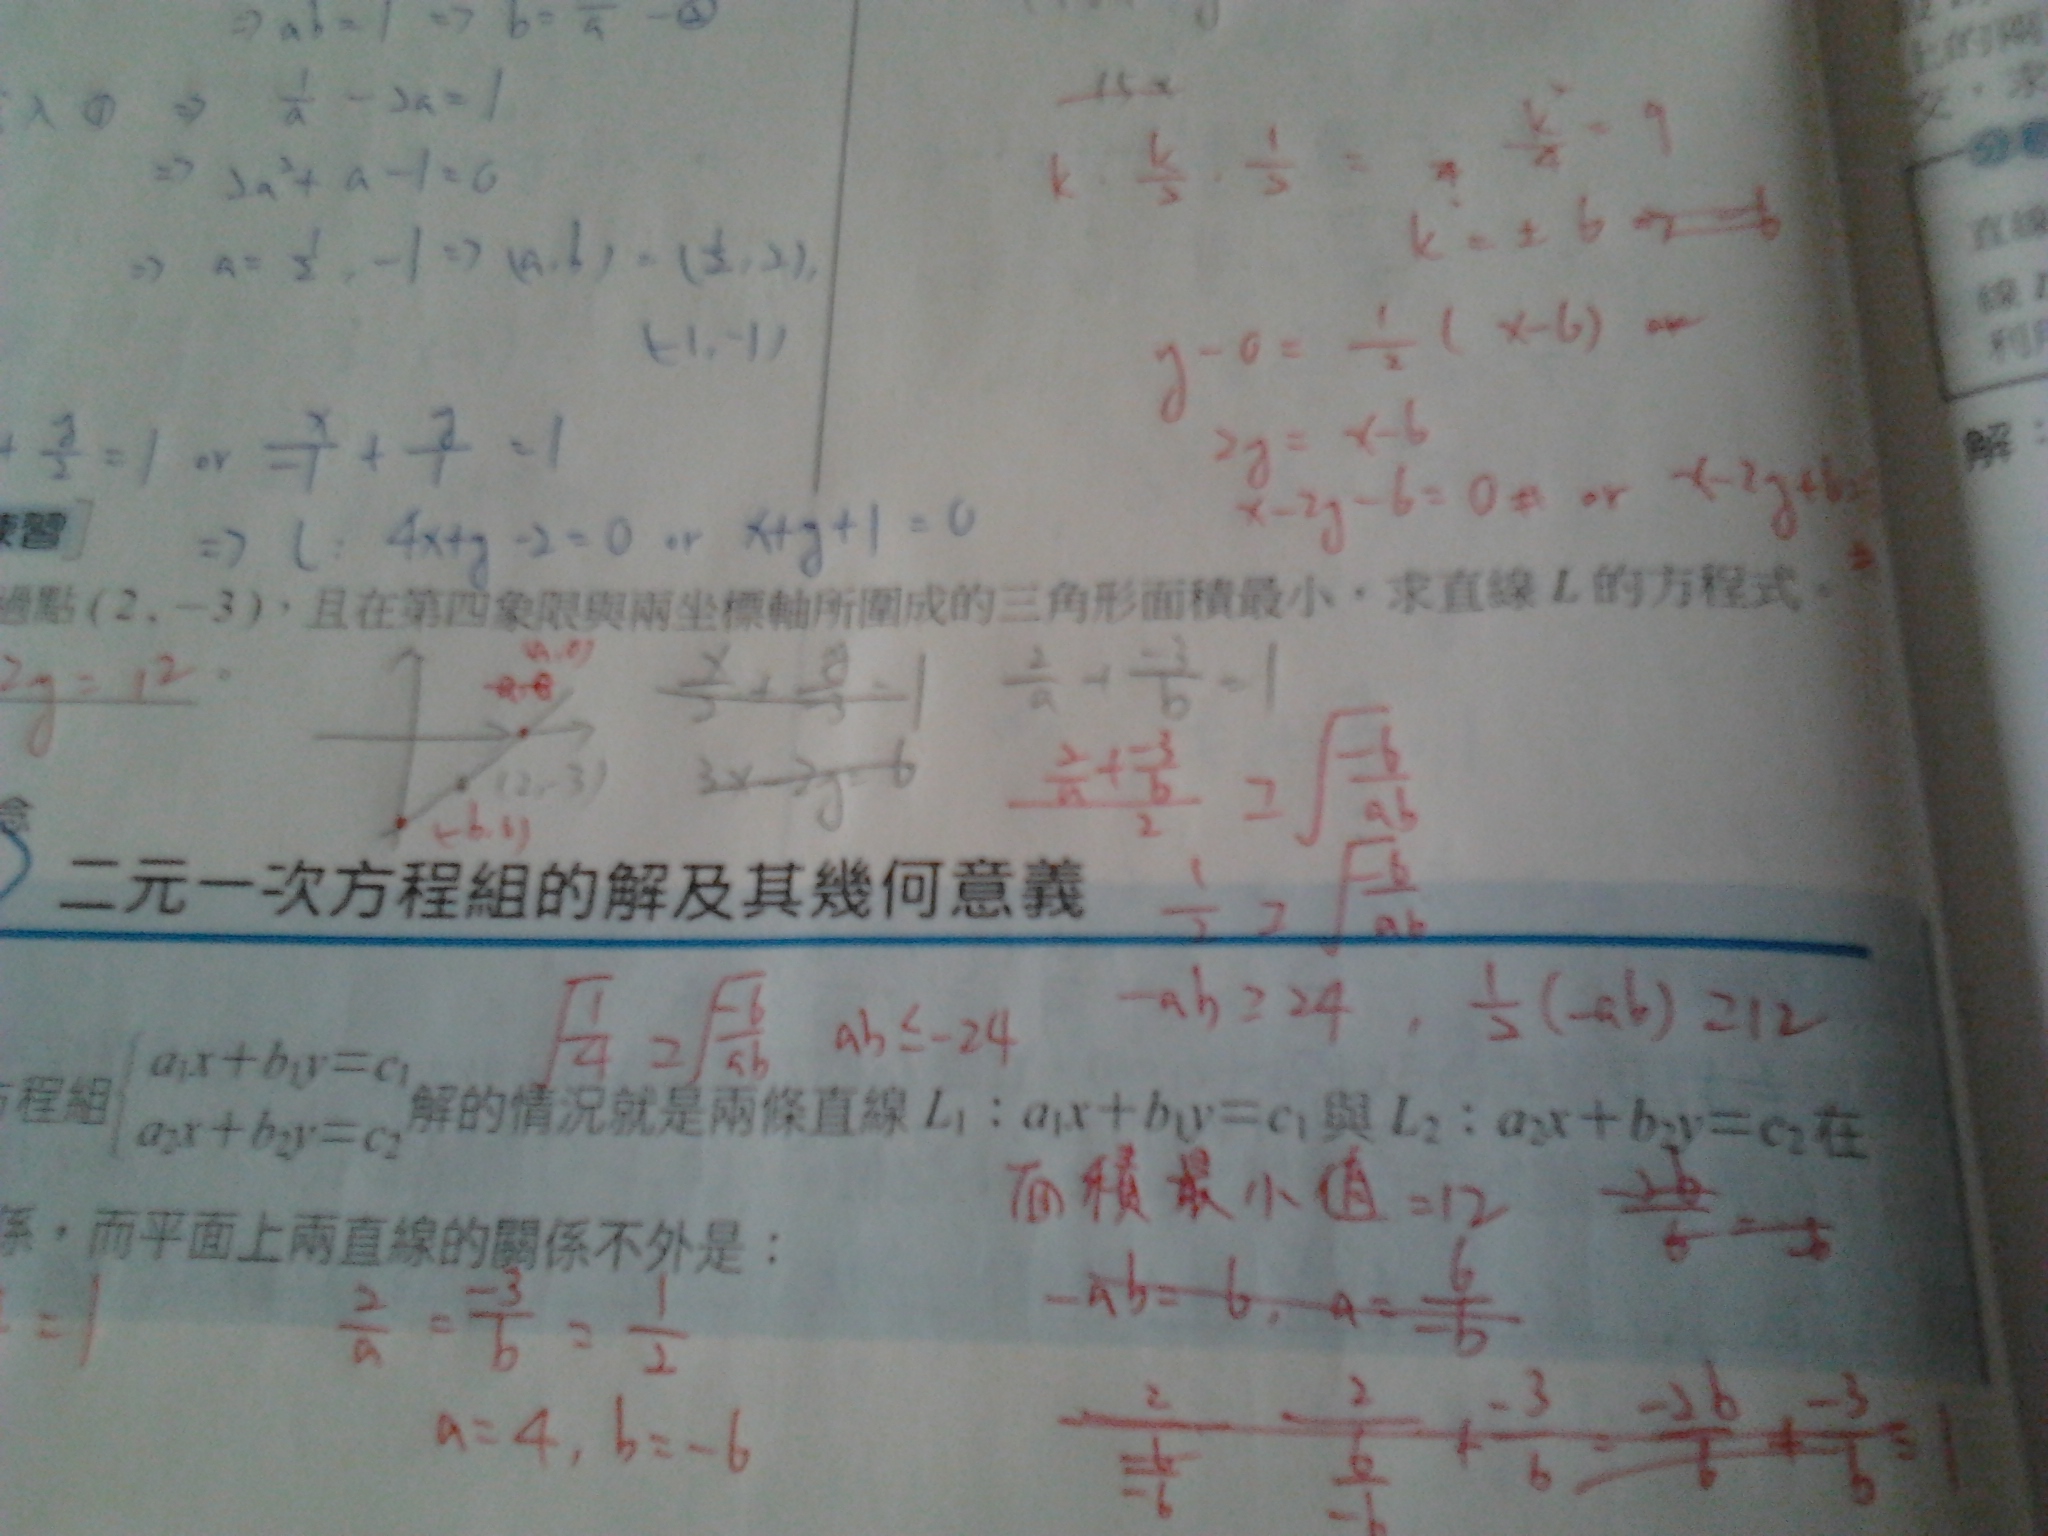 ⇒ ab=1 ⇒ b=1/a —②
入① ⇒ 1/a - 2a = 1
⇒ 2a²+a-1=0
⇒ a=1/2, -1 ⇒ (a,b)=(1/2,2),
(-1,-1)
+ y/2 = 1 or x/-1 + y/-1 = 1
⇒ L: 4x+y-2=0 or x+y+1=0
k · k/2 · 1/2 = 9
k²/4 = 9
k=±6
y-0=1/2(x-6) or
2y=x-6
x-2y-6=0 or x-2y+6=
練習
過點(2,-3),且在第四象限與兩坐標軸所圍成的三角形面積最小,求直線 L 的方程式。
2y=12
(a,0)
(2,-3)
x/2 + y/-3 = 1
2/a + -3/b = 1
3x-2y=6
(2/a + -3/b)/2 ≥ √(-6/ab)
1/2 ≥ √(-6/ab)
二元一次方程組的解及其幾何意義
√(1/4) ≥ √(-6/ab) ab≤-24
-ab≥24, 1/2(-ab)≥12
方程組{a₁x+b₁y=c₁
a₂x+b₂y=c₂ 解的情況就是兩條直線 L₁:a₁x+b₁y=c₁與 L₂:a₂x+b₂y=c₂在
面積最小值=12
係,而平面上兩直線的關係不外是:
=1
2/a = -3/b = 1/2
-ab=6, a=6/-b
a=4, b=-6
上的關
交,求
直線
線 L
利用
解: